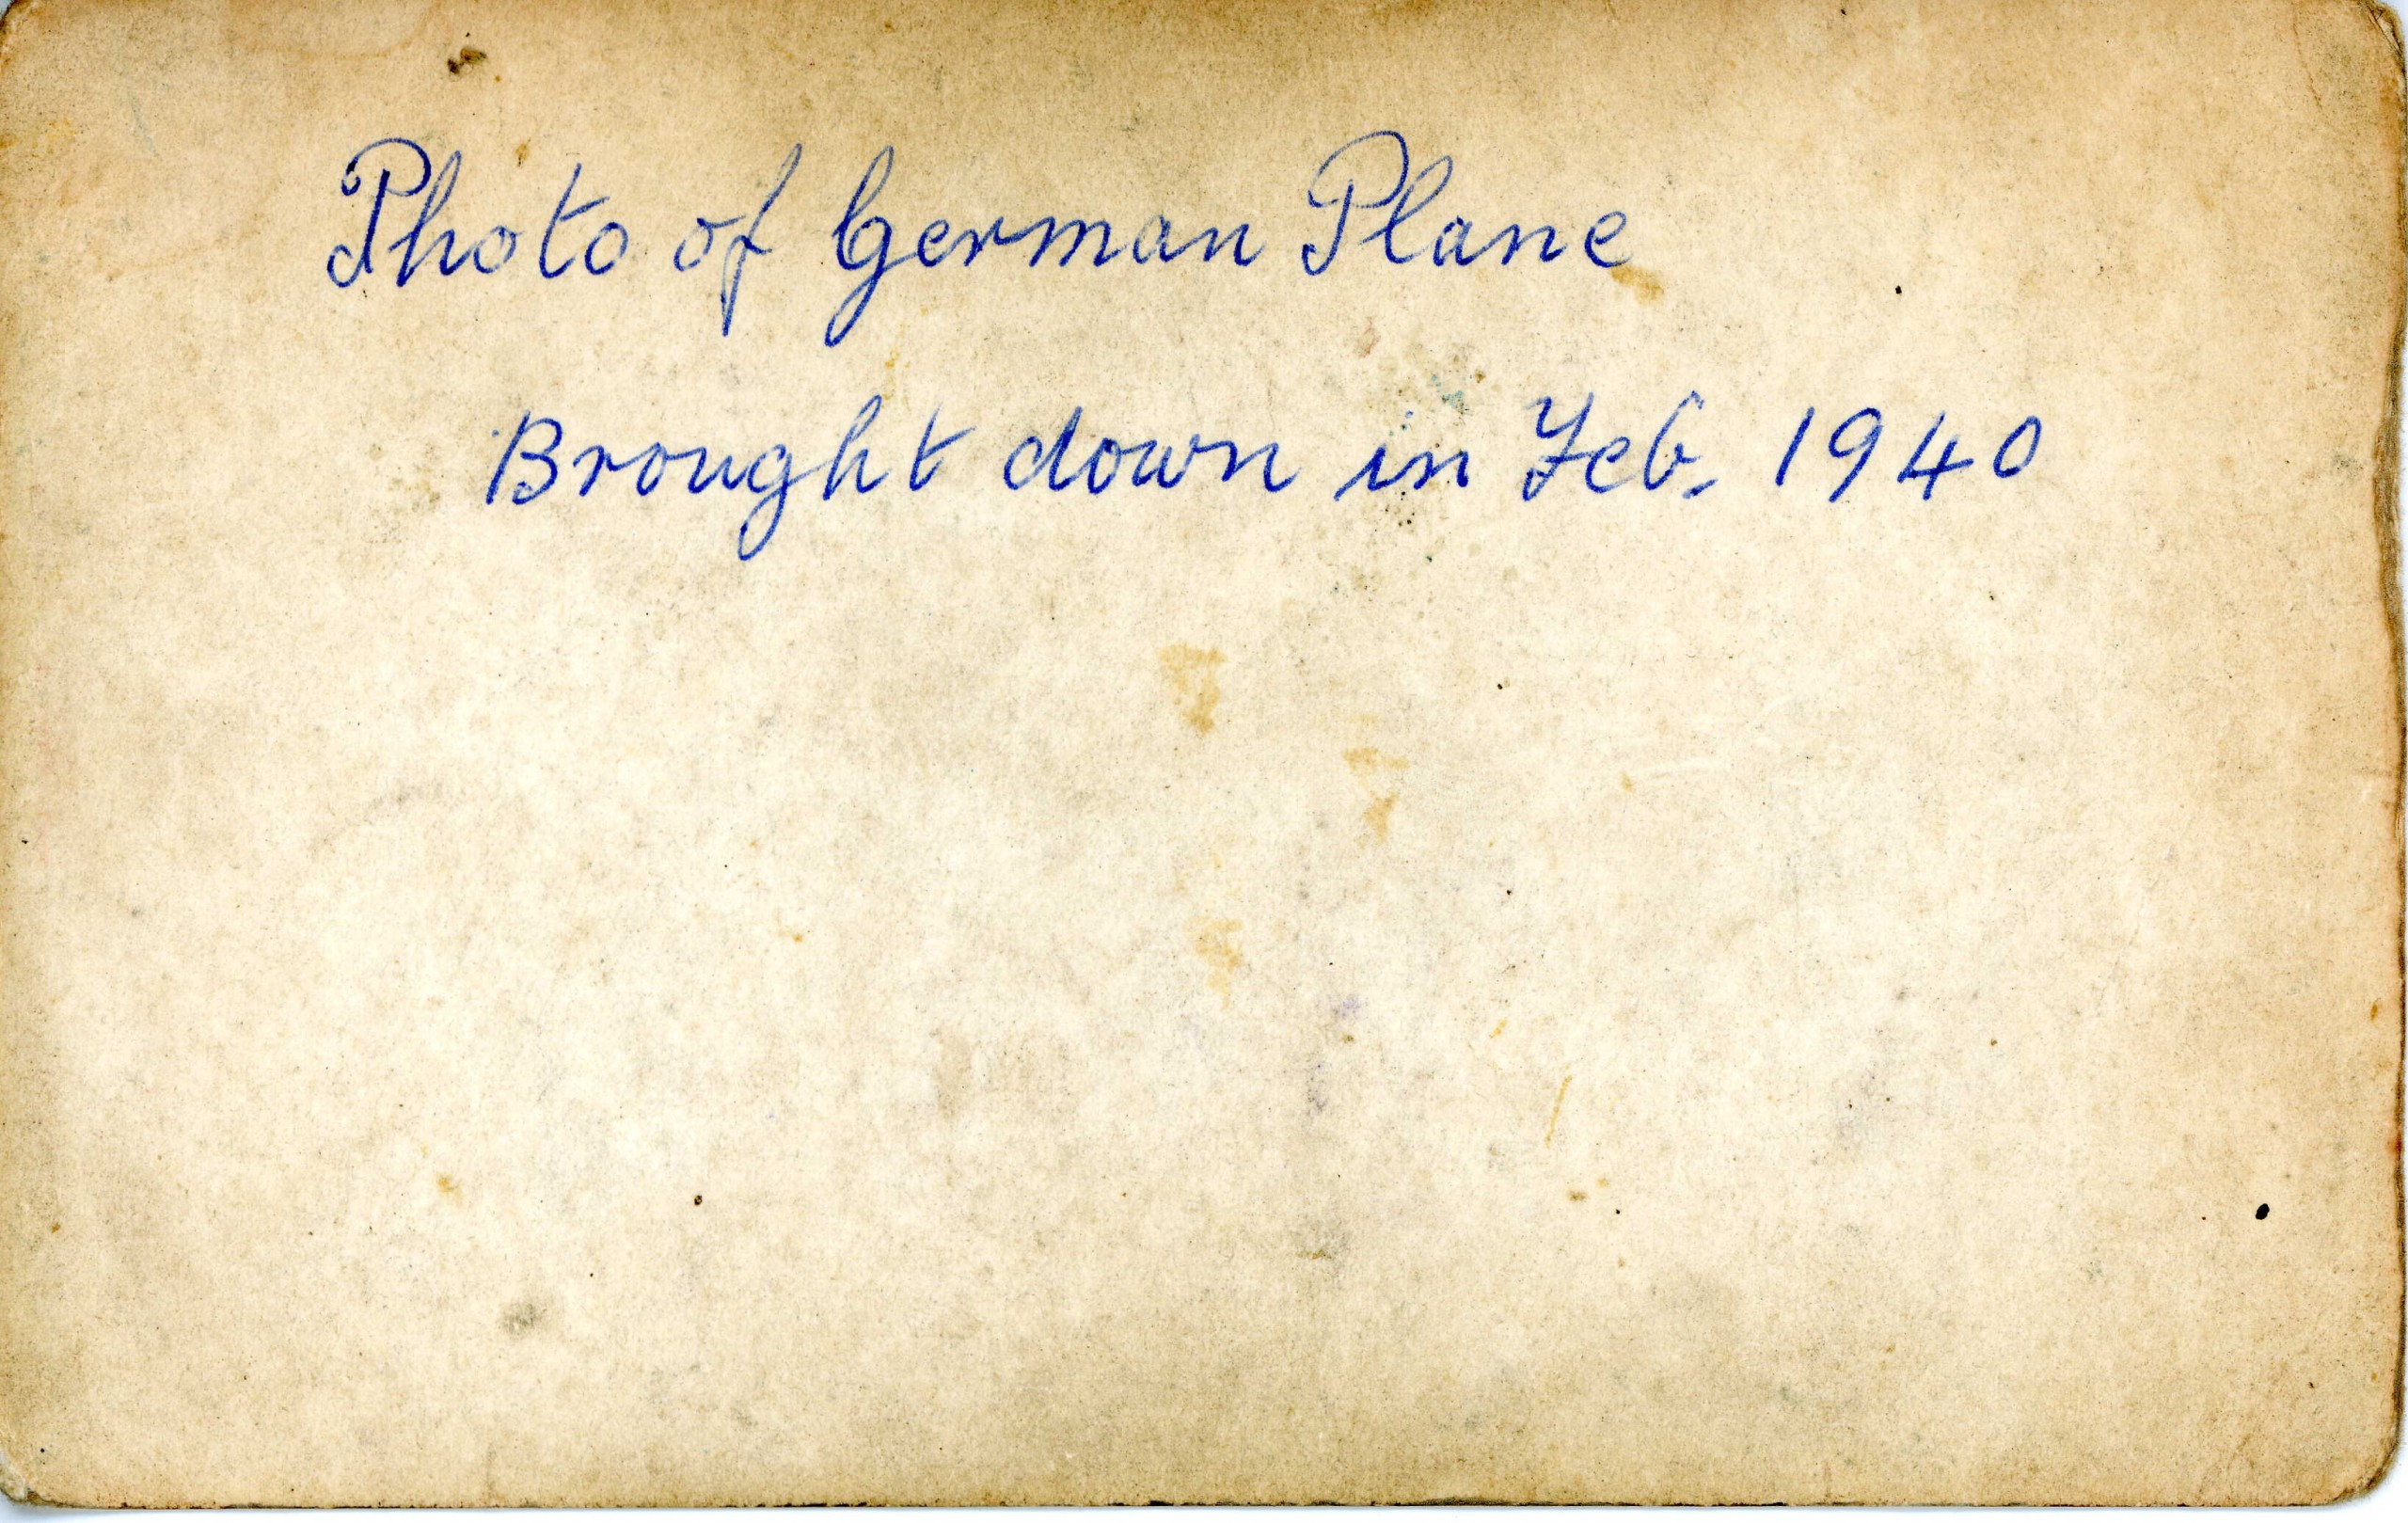 Photo of German Plane
Brought down in Feb. 1940